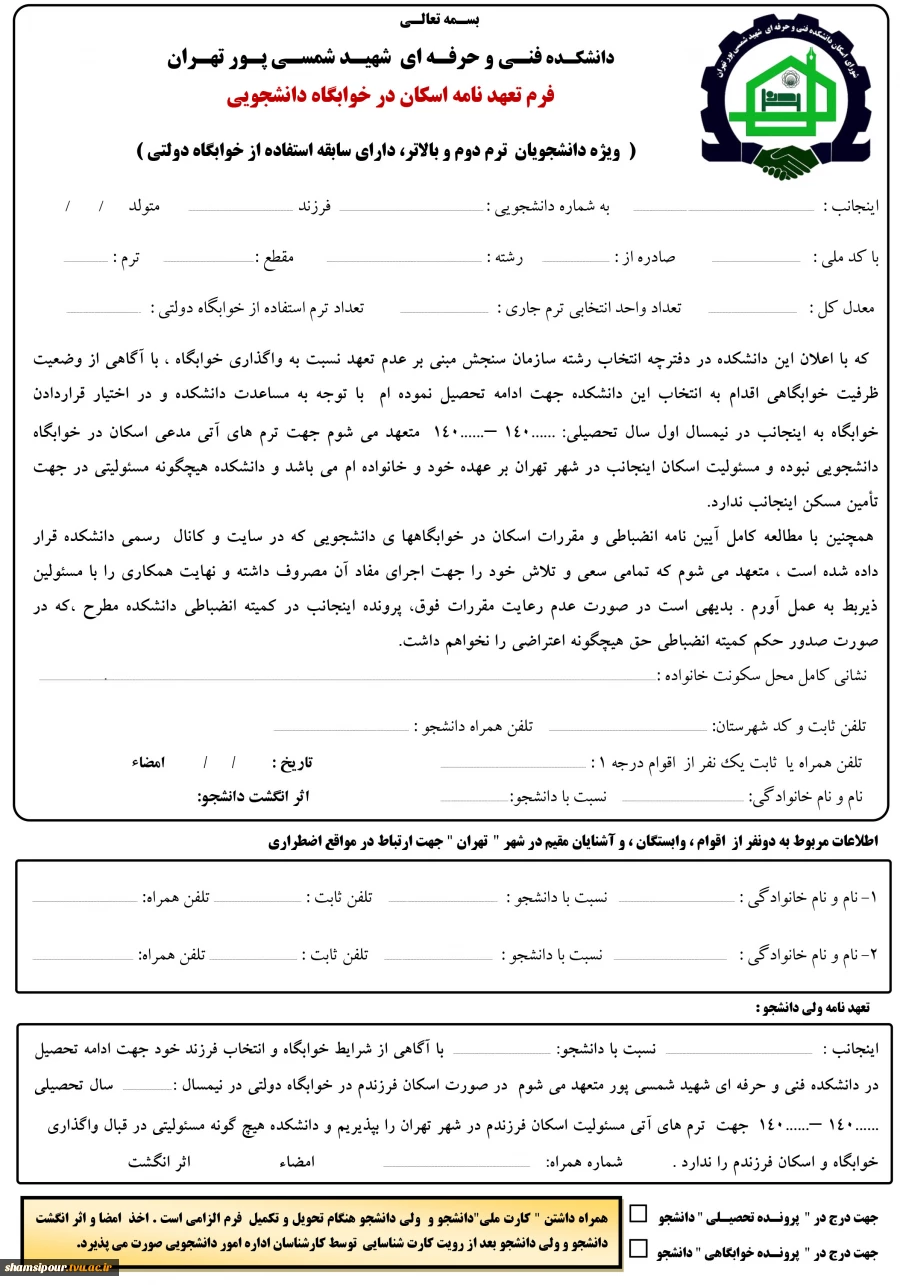 بسمه تعالی
دانشکده فنی و حرفه ای شهید شمسی پور تهران
فرم تعهد نامه اسکان در خوابگاه دانشجویی
( ویژه دانشجویان ترم دوم و بالاتر، دارای سابقه استفاده از خوابگاه دولتی )
شورای اسکان دانشکده فنی و حرفه ای شهید شمسی پور تهران
اینجانب : به شماره دانشجویی : فرزند متولد / /
با کد ملی : صادره از : رشته : مقطع : ترم :
معدل کل : تعداد واحد انتخابی ترم جاری : تعداد ترم استفاده از خوابگاه دولتی :
که با اعلان این دانشکده در دفترچه انتخاب رشته سازمان سنجش مبنی بر عدم تعهد نسبت به واگذاری خوابگاه ، با آگاهی از وضعیت
ظرفیت خوابگاهی اقدام به انتخاب این دانشکده جهت ادامه تحصیل نموده ام با توجه به مساعدت دانشکده و در اختیار قراردادن
خوابگاه به اینجانب در نیمسال اول سال تحصیلی: ......۱۴۰ –......۱۴۰ متعهد می شوم جهت ترم های آتی مدعی اسکان در خوابگاه
دانشجویی نبوده و مسئولیت اسکان اینجانب در شهر تهران بر عهده خود و خانواده ام می باشد و دانشکده هیچگونه مسئولیتی در جهت
تأمین مسکن اینجانب ندارد.
همچنین با مطالعه کامل آیین نامه انضباطی و مقررات اسکان در خوابگاهها ی دانشجویی که در سایت و کانال رسمی دانشکده قرار
داده شده است ، متعهد می شوم که تمامی سعی و تلاش خود را جهت اجرای مفاد آن مصروف داشته و نهایت همکاری را با مسئولین
ذیربط به عمل آورم . بدیهی است در صورت عدم رعایت مقررات فوق، پرونده اینجانب در کمیته انضباطی دانشکده مطرح ،که در
صورت صدور حکم کمیته انضباطی حق هیچگونه اعتراضی را نخواهم داشت.
نشانی کامل محل سکونت خانواده :
تلفن ثابت و کد شهرستان: تلفن همراه دانشجو :
تلفن همراه یا ثابت یک نفر از اقوام درجه ۱ : تاریخ : / / امضاء
نام و نام خانوادگی: نسبت با دانشجو: اثر انگشت دانشجو:
اطلاعات مربوط به دونفر از اقوام ، وابستگان ، و آشنایان مقیم در شهر " تهران " جهت ارتباط در مواقع اضطراری
۱- نام و نام خانوادگی : نسبت با دانشجو : تلفن ثابت : تلفن همراه:
۲- نام و نام خانوادگی : نسبت با دانشجو : تلفن ثابت : تلفن همراه:
تعهد نامه ولی دانشجو :
اینجانب : نسبت با دانشجو: با آگاهی از شرایط خوابگاه و انتخاب فرزند خود جهت ادامه تحصیل
در دانشکده فنی و حرفه ای شهید شمسی پور متعهد می شوم در صورت اسکان فرزندم در خوابگاه دولتی در نیمسال : سال تحصیلی
......۱۴۰ –......۱۴۰ جهت ترم های آتی مسئولیت اسکان فرزندم در شهر تهران را بپذیریم و دانشکده هیچ گونه مسئولیتی در قبال واگذاری
خوابگاه و اسکان فرزندم را ندارد . شماره همراه: امضاء اثر انگشت
جهت درج در " پرونده تحصیلی " دانشجو
جهت درج در " پرونده خوابگاهی " دانشجو
همراه داشتن " کارت ملی"دانشجو و ولی دانشجو هنگام تحویل و تکمیل فرم الزامی است . اخذ امضا و اثر انگشت
دانشجو و ولی دانشجو بعد از رویت کارت شناسایی توسط کارشناسان اداره امور دانشجویی صورت می پذیرد.
shamsipour.tvu.ac.ir